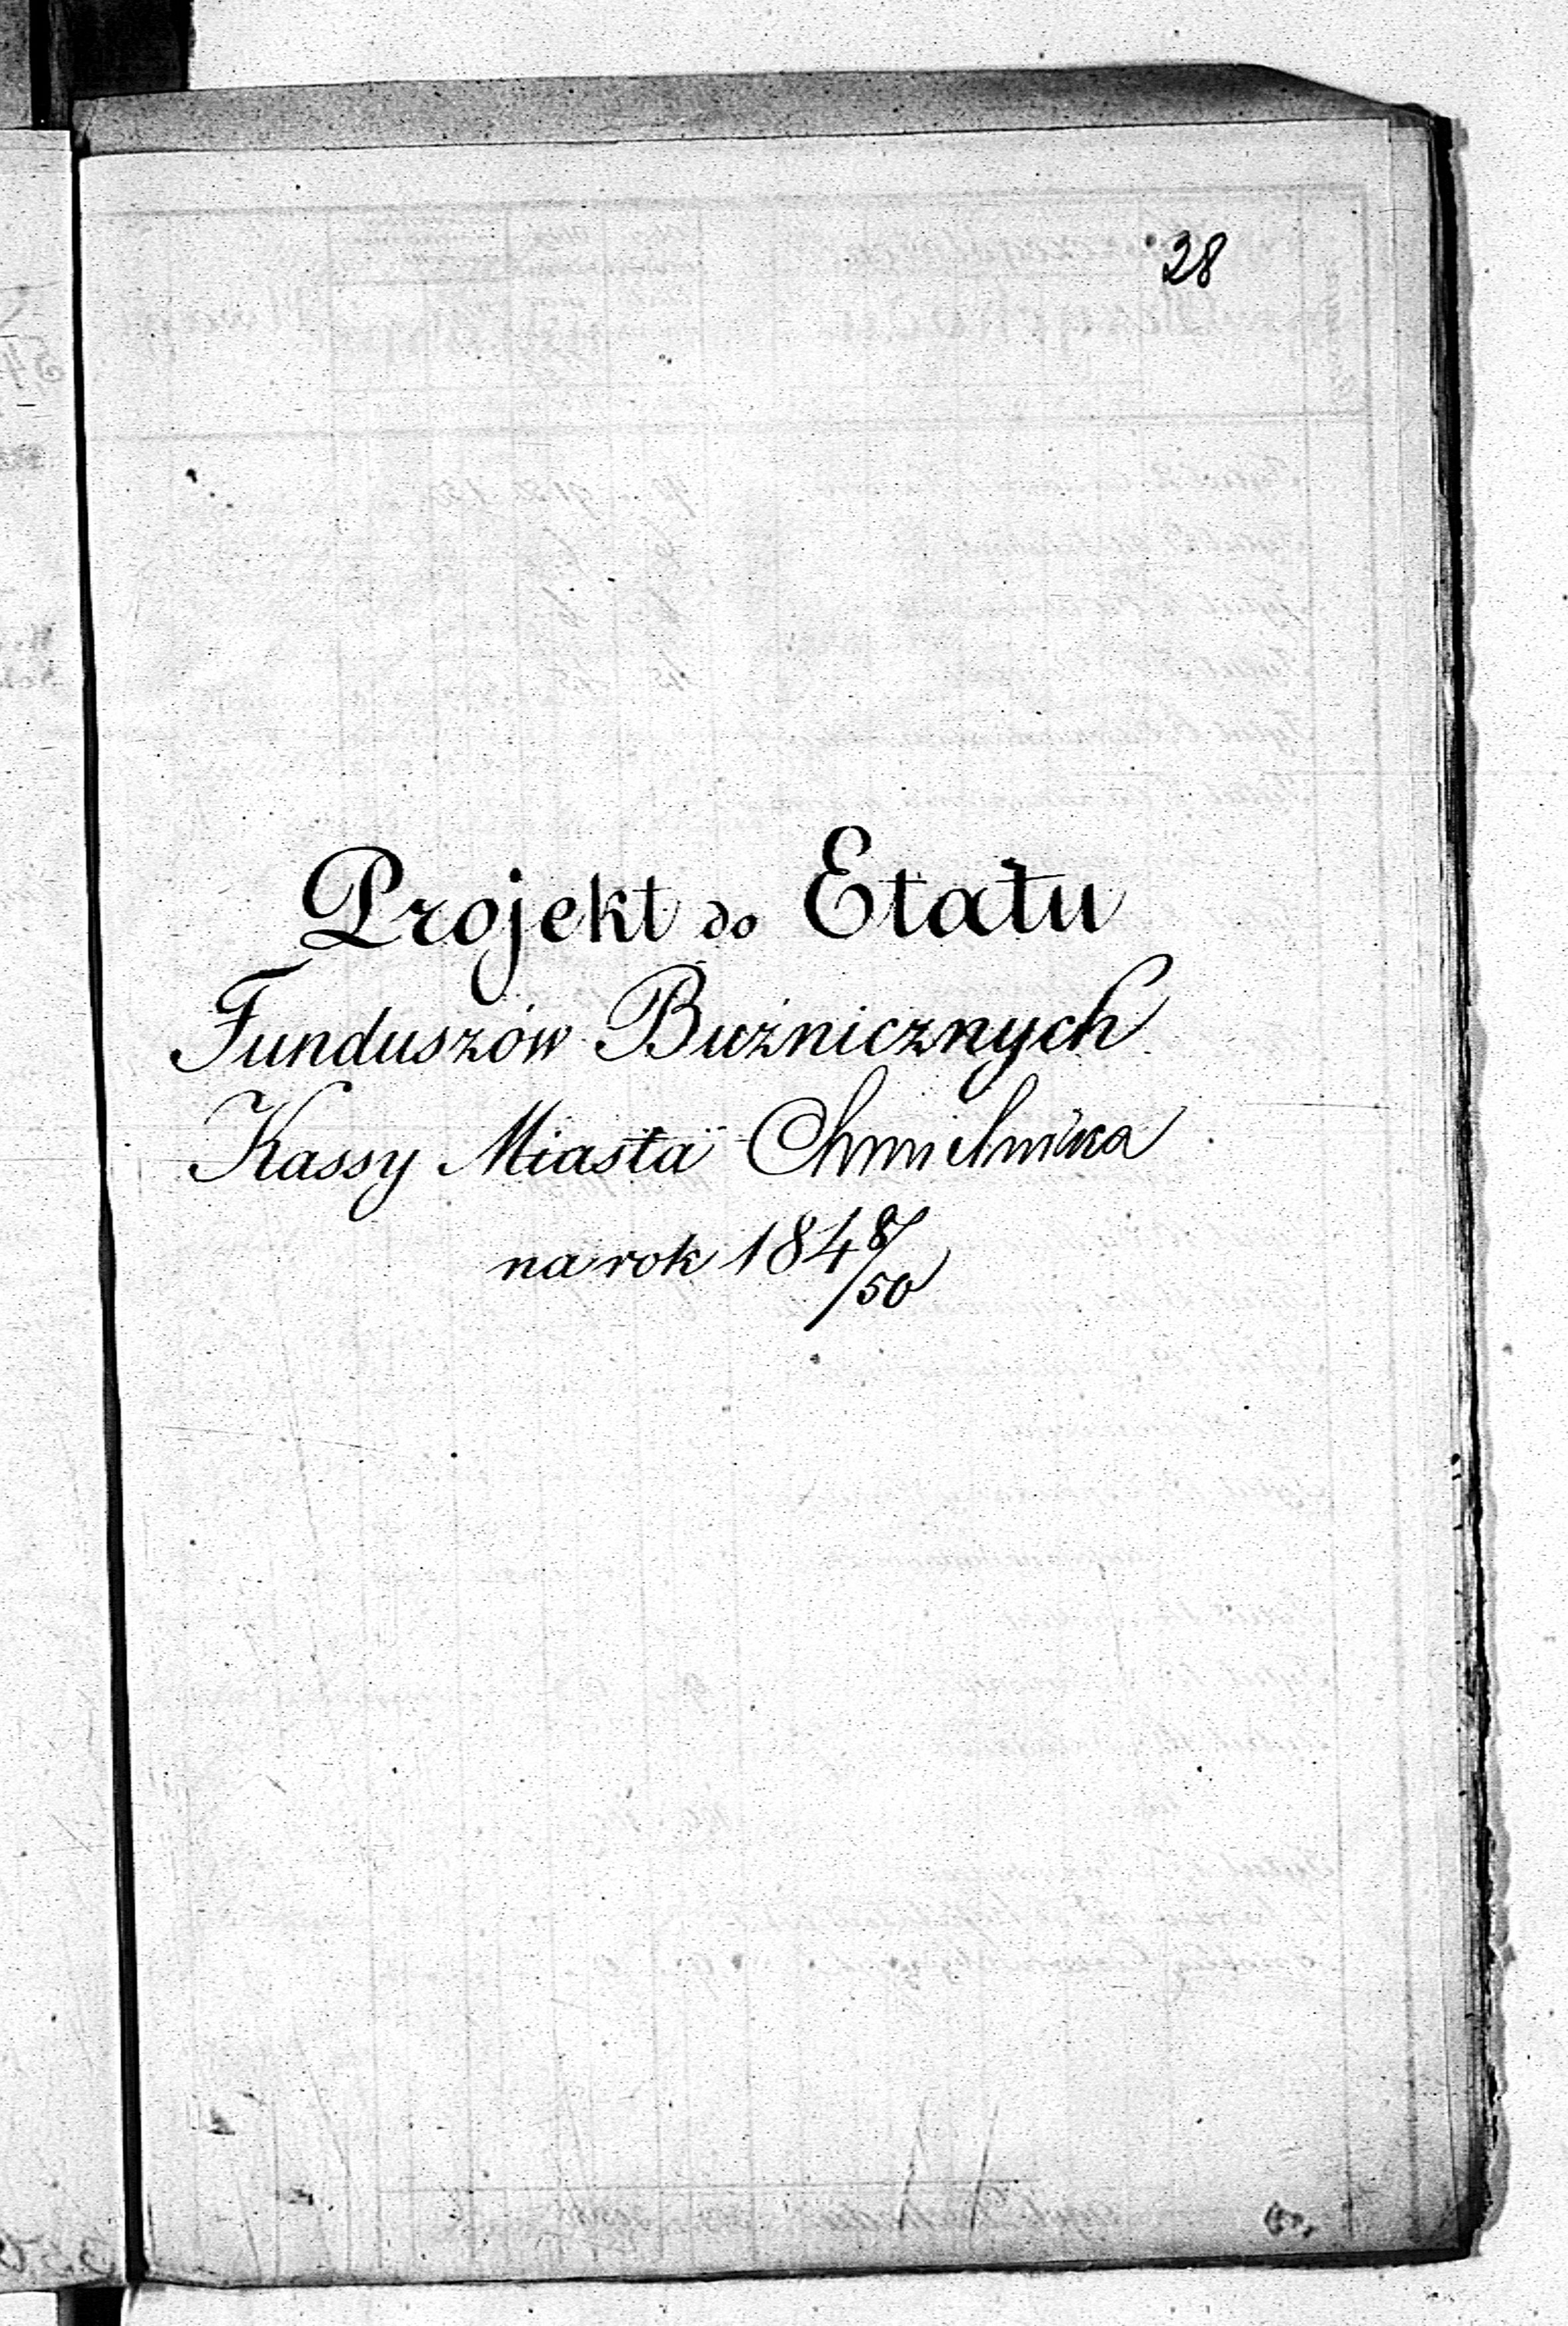 28
Projekt do Etatu
Funduszów Bużnicznych
Kassy Miasta Chmielnika
na rok 1848/50